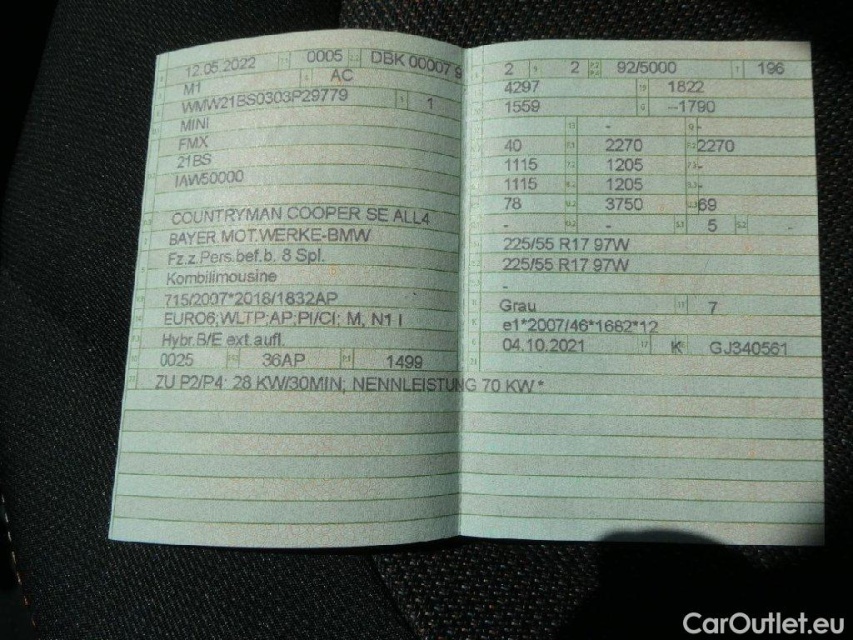 12.05.2022 0005 DBK 00007 9
M1 AC
WMW21BS0303P29779 1
MINI
FMX
21BS
IAW50000
COUNTRYMAN COOPER SE ALL4
BAYER.MOT.WERKE-BMW
Fz.z.Pers.bef.b. 8 Spl.
Kombilimousine
715/2007*2018/1832AP
EURO6;WLTP;AP;PI/CI; M, N1 I
Hybr.B/E ext.aufl.
0025 36AP 1499
ZU P2/P4: 28 KW/30MIN; NENNLEISTUNG 70 KW*
2 2 92/5000 196
4297 1822
1559 --1790
- -
40 2270 2270
1115 1205 -
1115 1205 -
78 3750 69
- - 5
225/55 R17 97W
225/55 R17 97W
-
Grau 7
e1*2007/46*1682*12
04.10.2021 K GJ340561
CarOutlet.eu